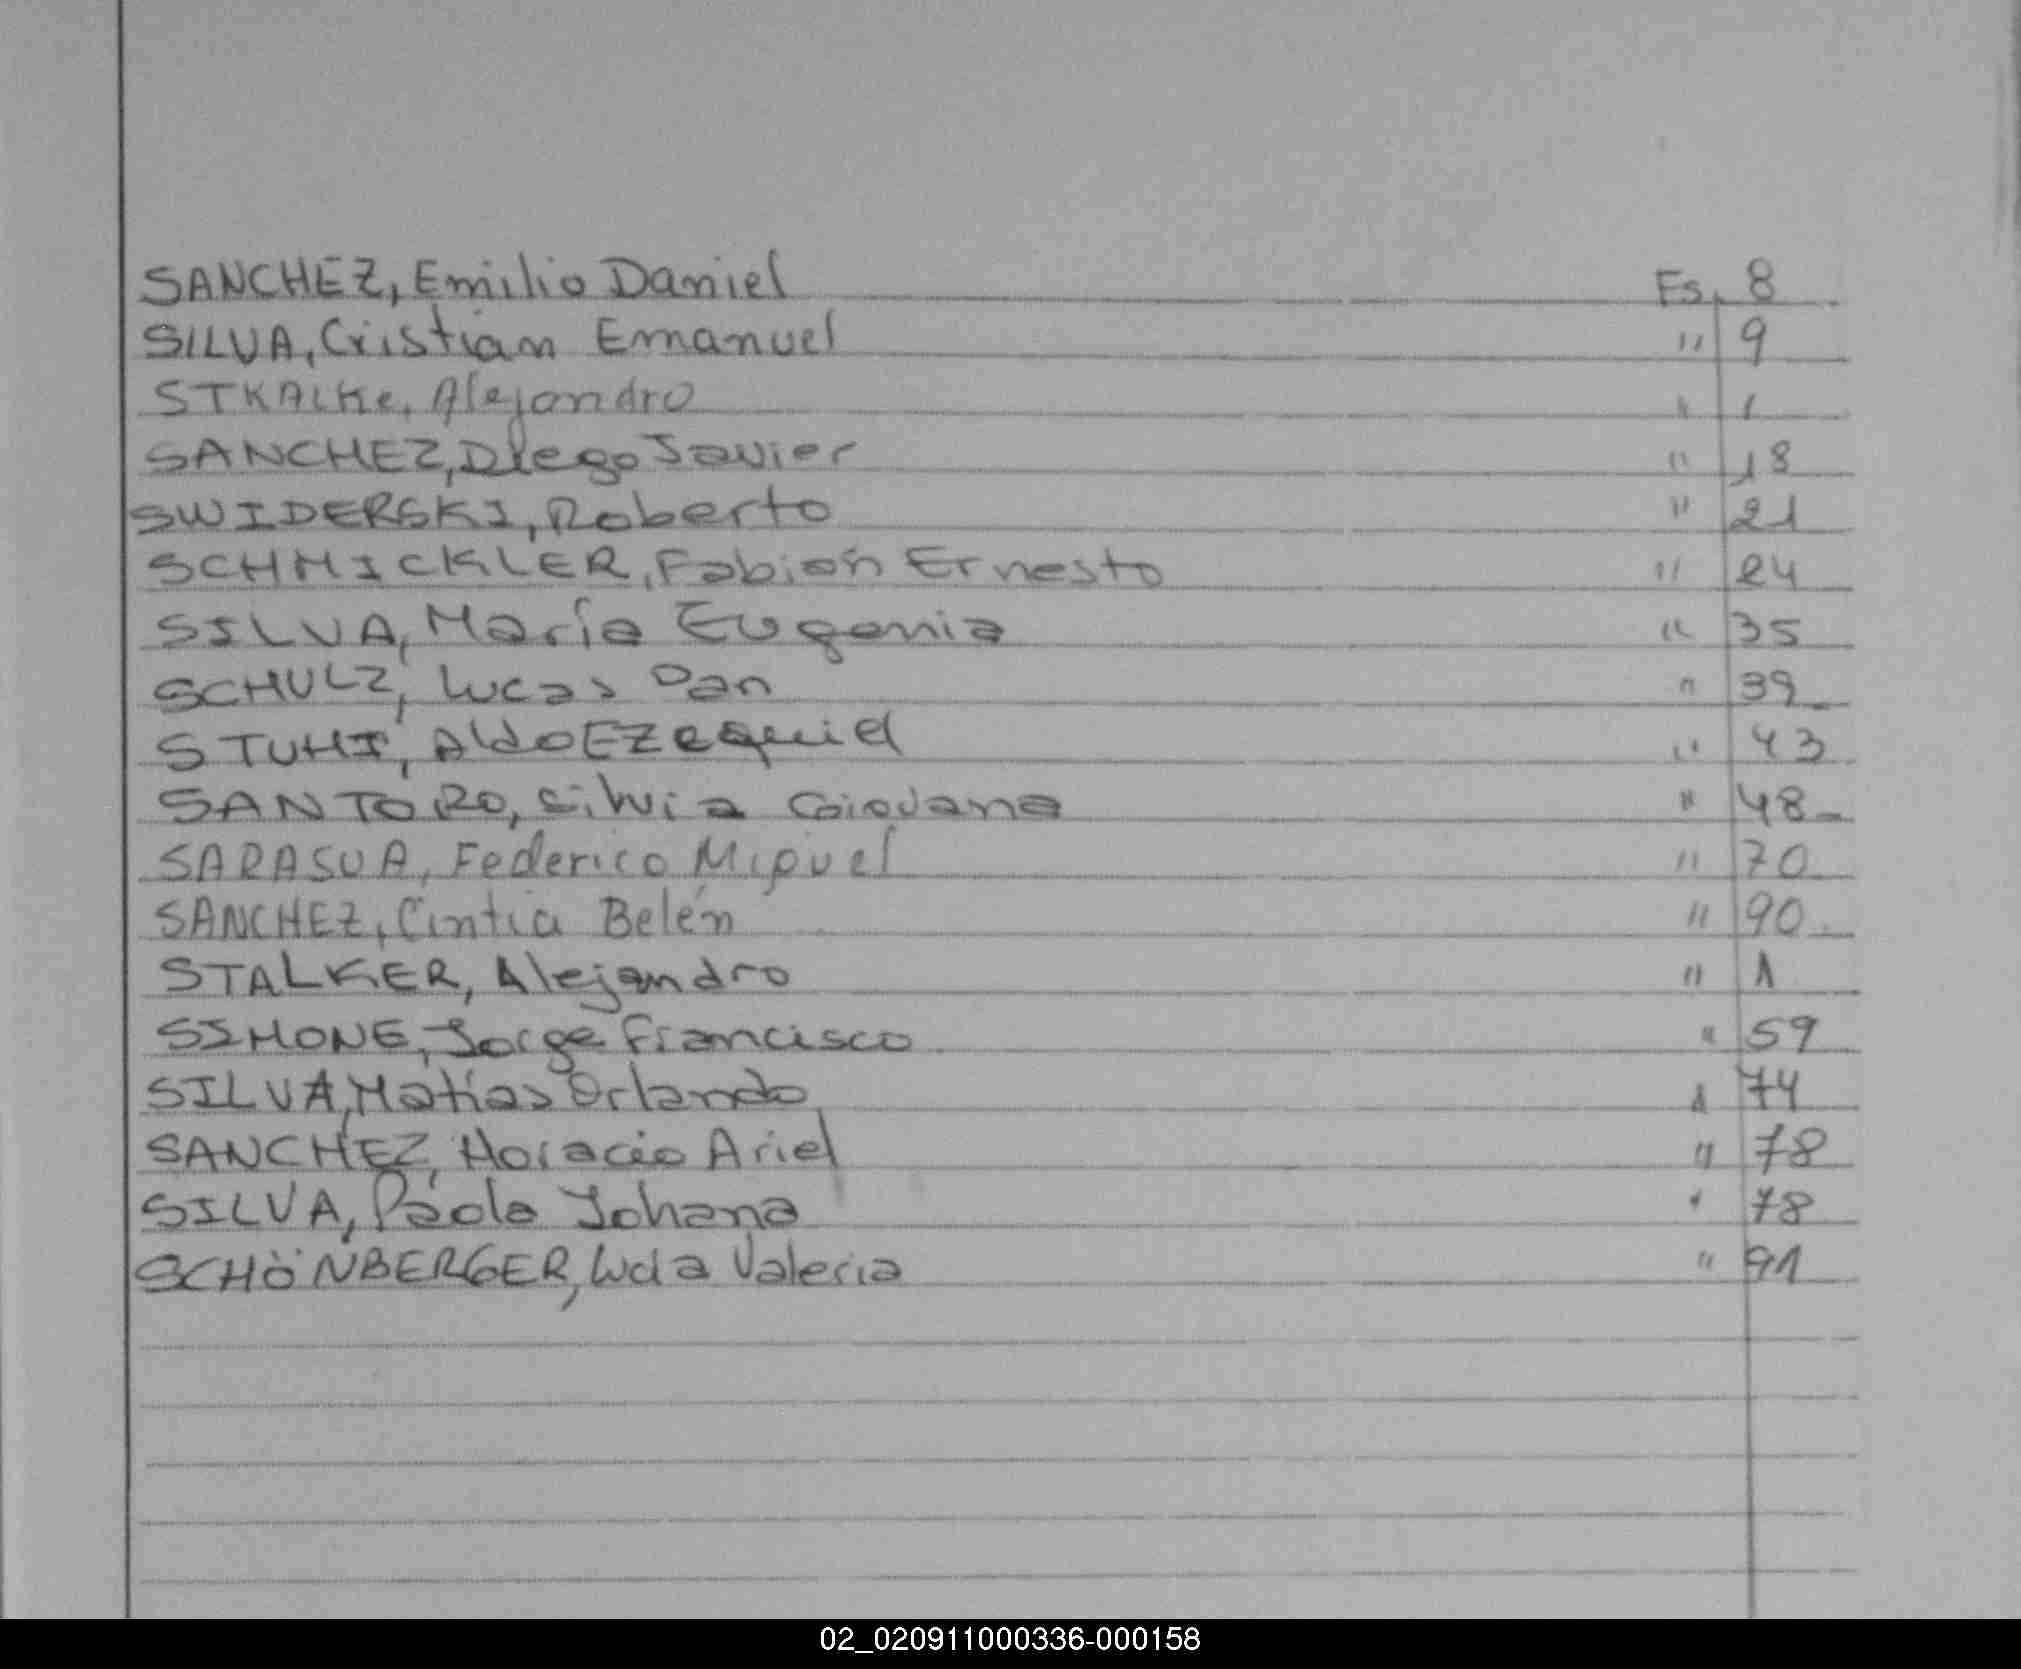 SANCHEZ, Emilio Daniel Fs. 8
SILVA, Cristian Emanuel " 9
STKALKe, Alejandro " 1
SANCHEZ, Diego Javier " 18
SWIDERSKI, Roberto " 21
SCHMICKLER, Fabián Ernesto " 24
SILVA, María Eugenia " 35
SCHULZ, Lucas Dan " 39
STUHI, Aldo EZequiel " 43
SANTORO, Silvia Giovana " 48
SARASUA, Federico Miguel " 70
SANCHEZ, Cintia Belén " 90
STALKER, Alejandro " 1
SIMONE, Jorge Francisco " 59
SILVA, Matías Orlando " 74
SANCHEZ, Horacio Ariel " 78
SILVA, Paola Johana " 78
SCHÖNBERGER, Lucia Valeria " 91
02_020911000336-000158